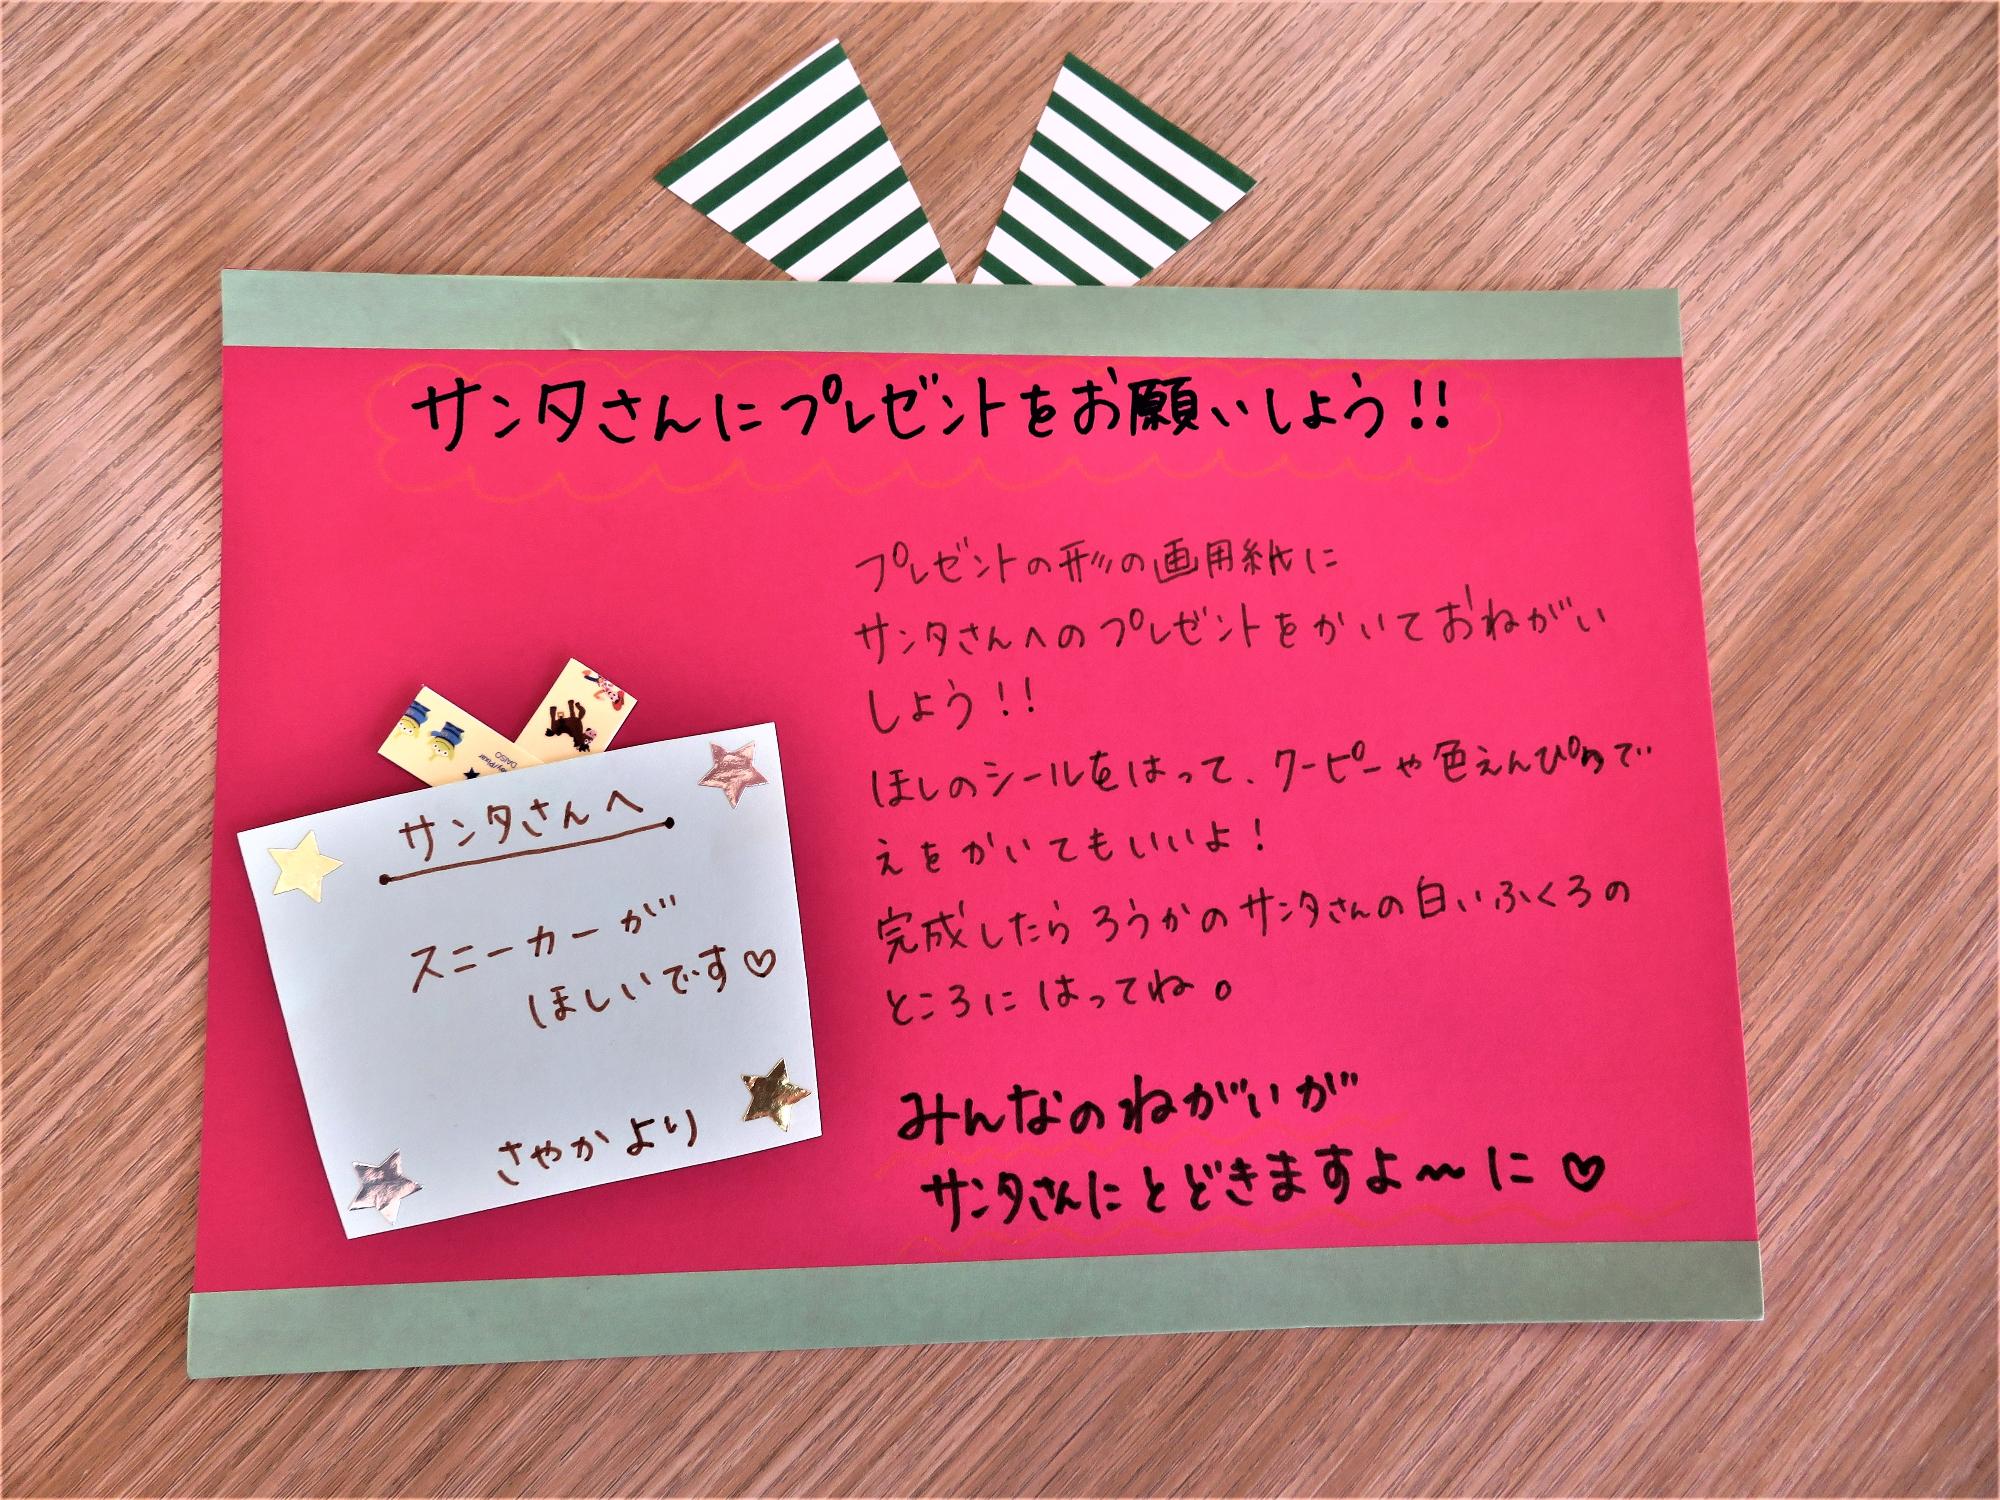 サンタさんにプレゼントをお願いしよう!!
プレゼントの形の画用紙に
サンタさんへのプレゼントをかいておねがい
しよう!!
ほしのシールをはって、クーピーや色えんぴつで
えをかいてもいいよ!
完成したらろうかのサンタさんの白いふくろの
ところにはってね。
みんなのねがいが
サンタさんにとどきますよ〜に♡
サンタさんへ
スニーカーが
ほしいです♡
さやかより
DAISO